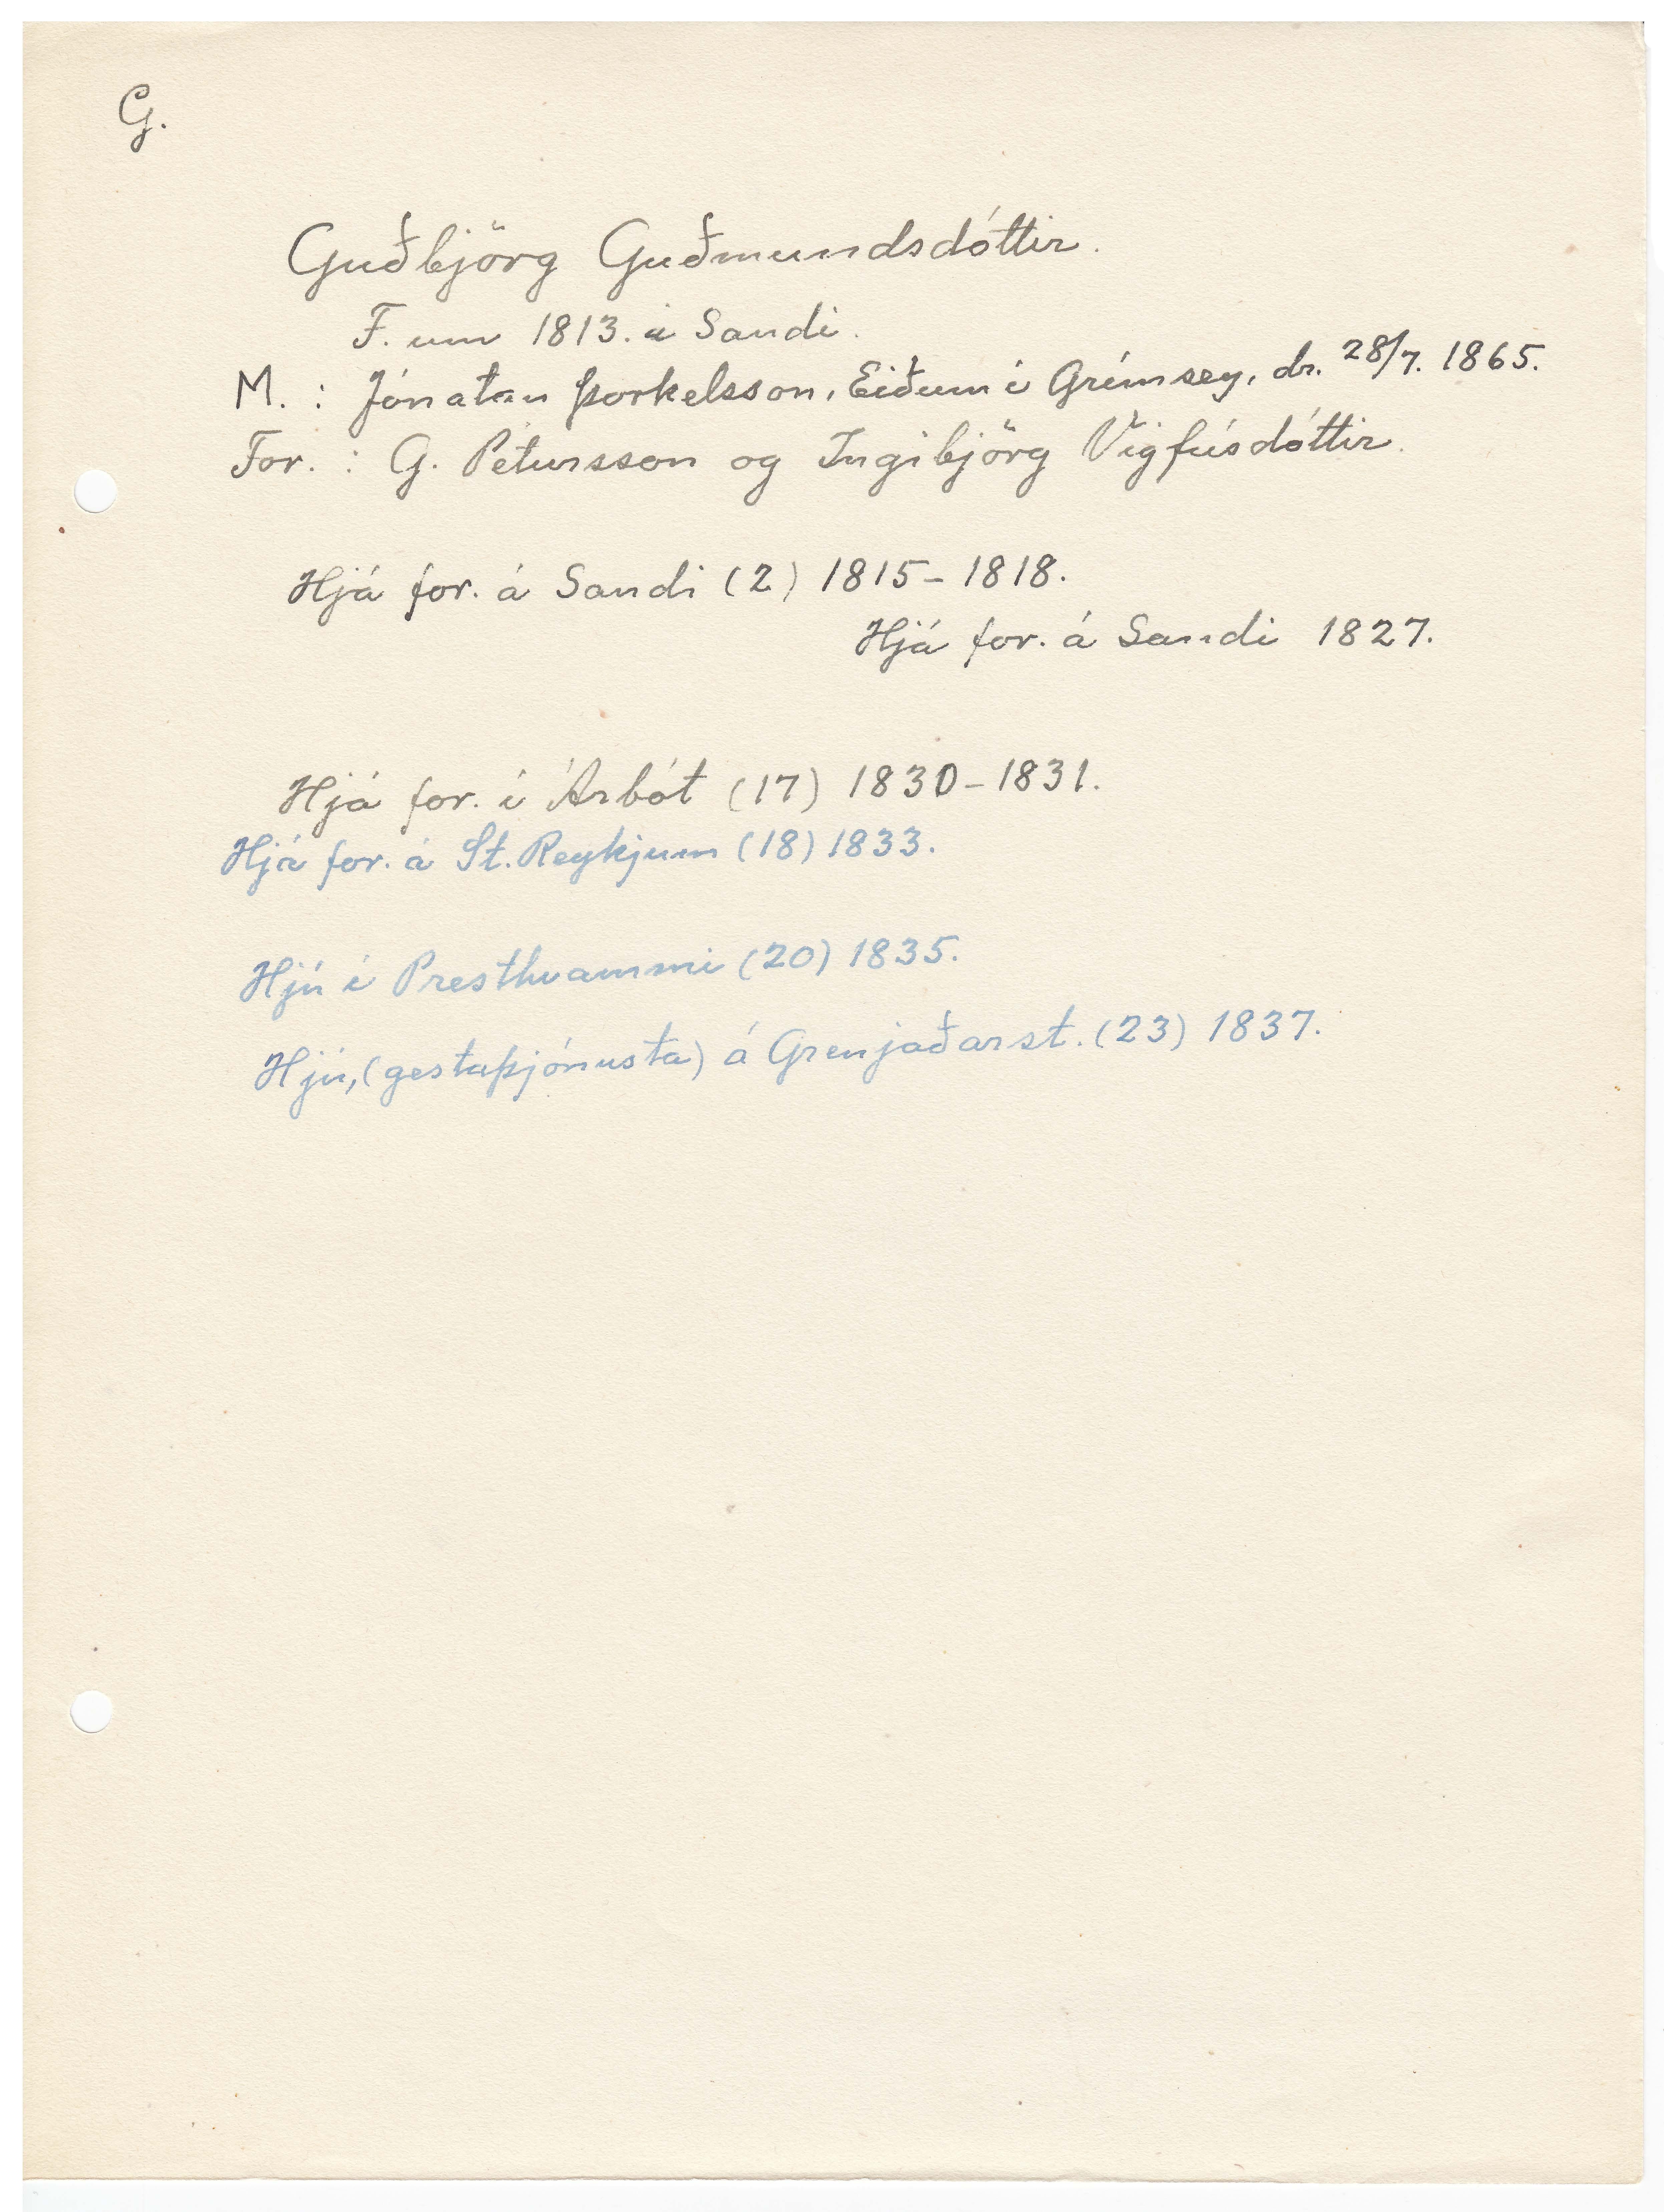 G.
Guðbjörg Guðmundsdóttir.
F. um 1813. á Sandi.
M. : Jónatan Þorkelsson, Eiðum í Grímsey, dr. 28/7. 1865.
For. : G. Pétursson og Ingibjörg Vigfúsdóttir.
Hjá for. á Sandi (2) 1815-1818.
Hjá for. á Sandi 1827.
Hjá for. í Árbót (17) 1830-1831.
Hjá for. á St. Reykjum (18) 1833.
Hjú í Presthvammi (20) 1835.
Hjú, (gestaþjónusta) á Grenjaðarst. (23) 1837.